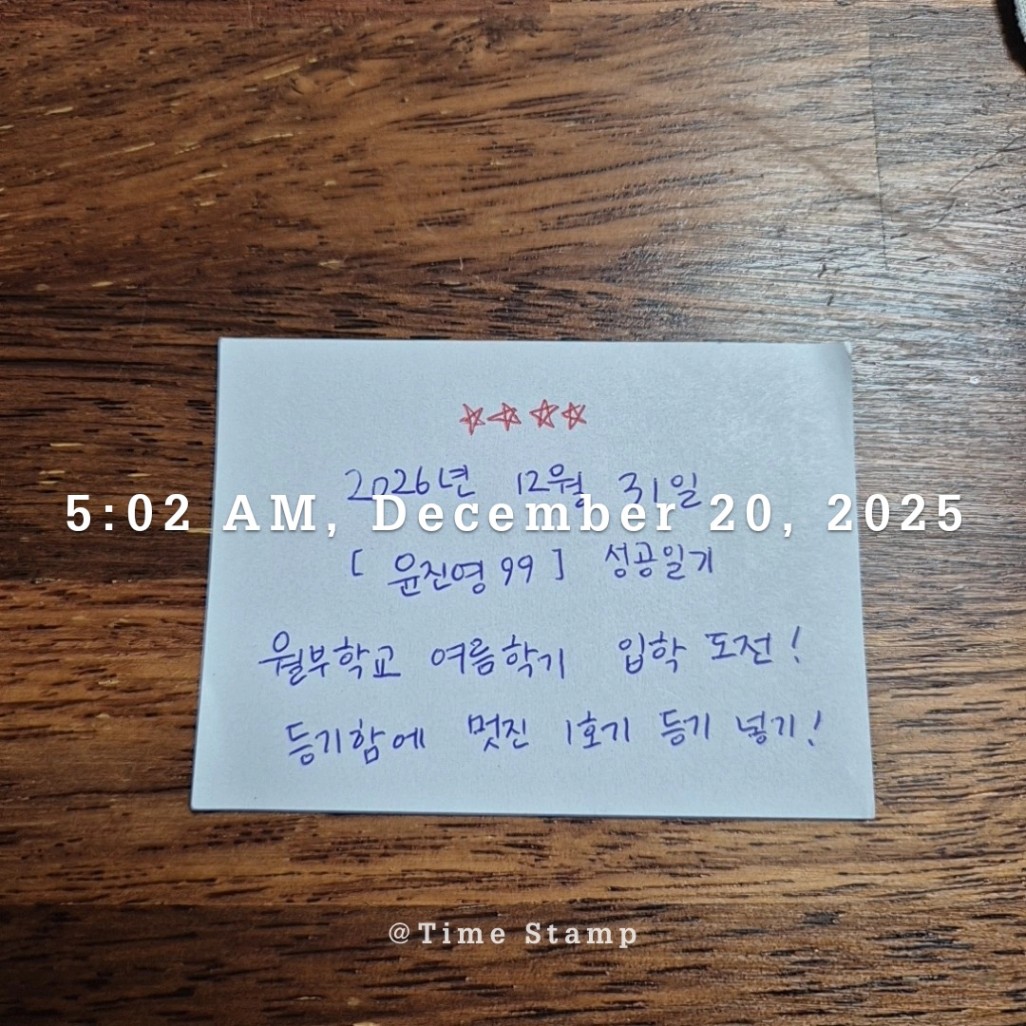 2026년 12월 31일
5:02 AM, December 20, 2025
[ 윤진영99 ] 성공일기
월부학교 여름학기 입학 도전!
등기함에 멋진 1호기 등기 넣기!
@Time Stamp